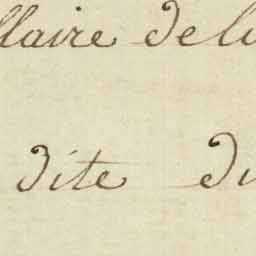 llaire de
dite du